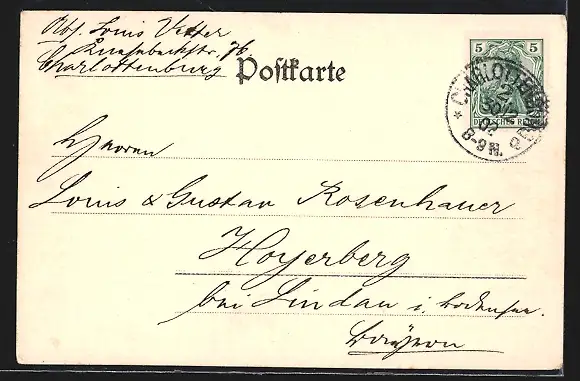 Abs. Louis Vetter
Knesebeckstr. 76.
Charlottenburg
Postkarte
5 5
DEUTSCHES REICH
* CHARLOTTENBURG
02
8-9N.
Herren
Louis & Gustav Rosenhauer
Hoyerberg
bei Lindau i. Bodensee.
Bayern